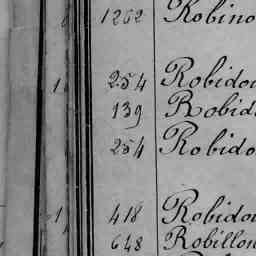 1262 Robino
1 254 Robidou
139 Robid
254 Robido
1 418 Robidou
648 Robillon